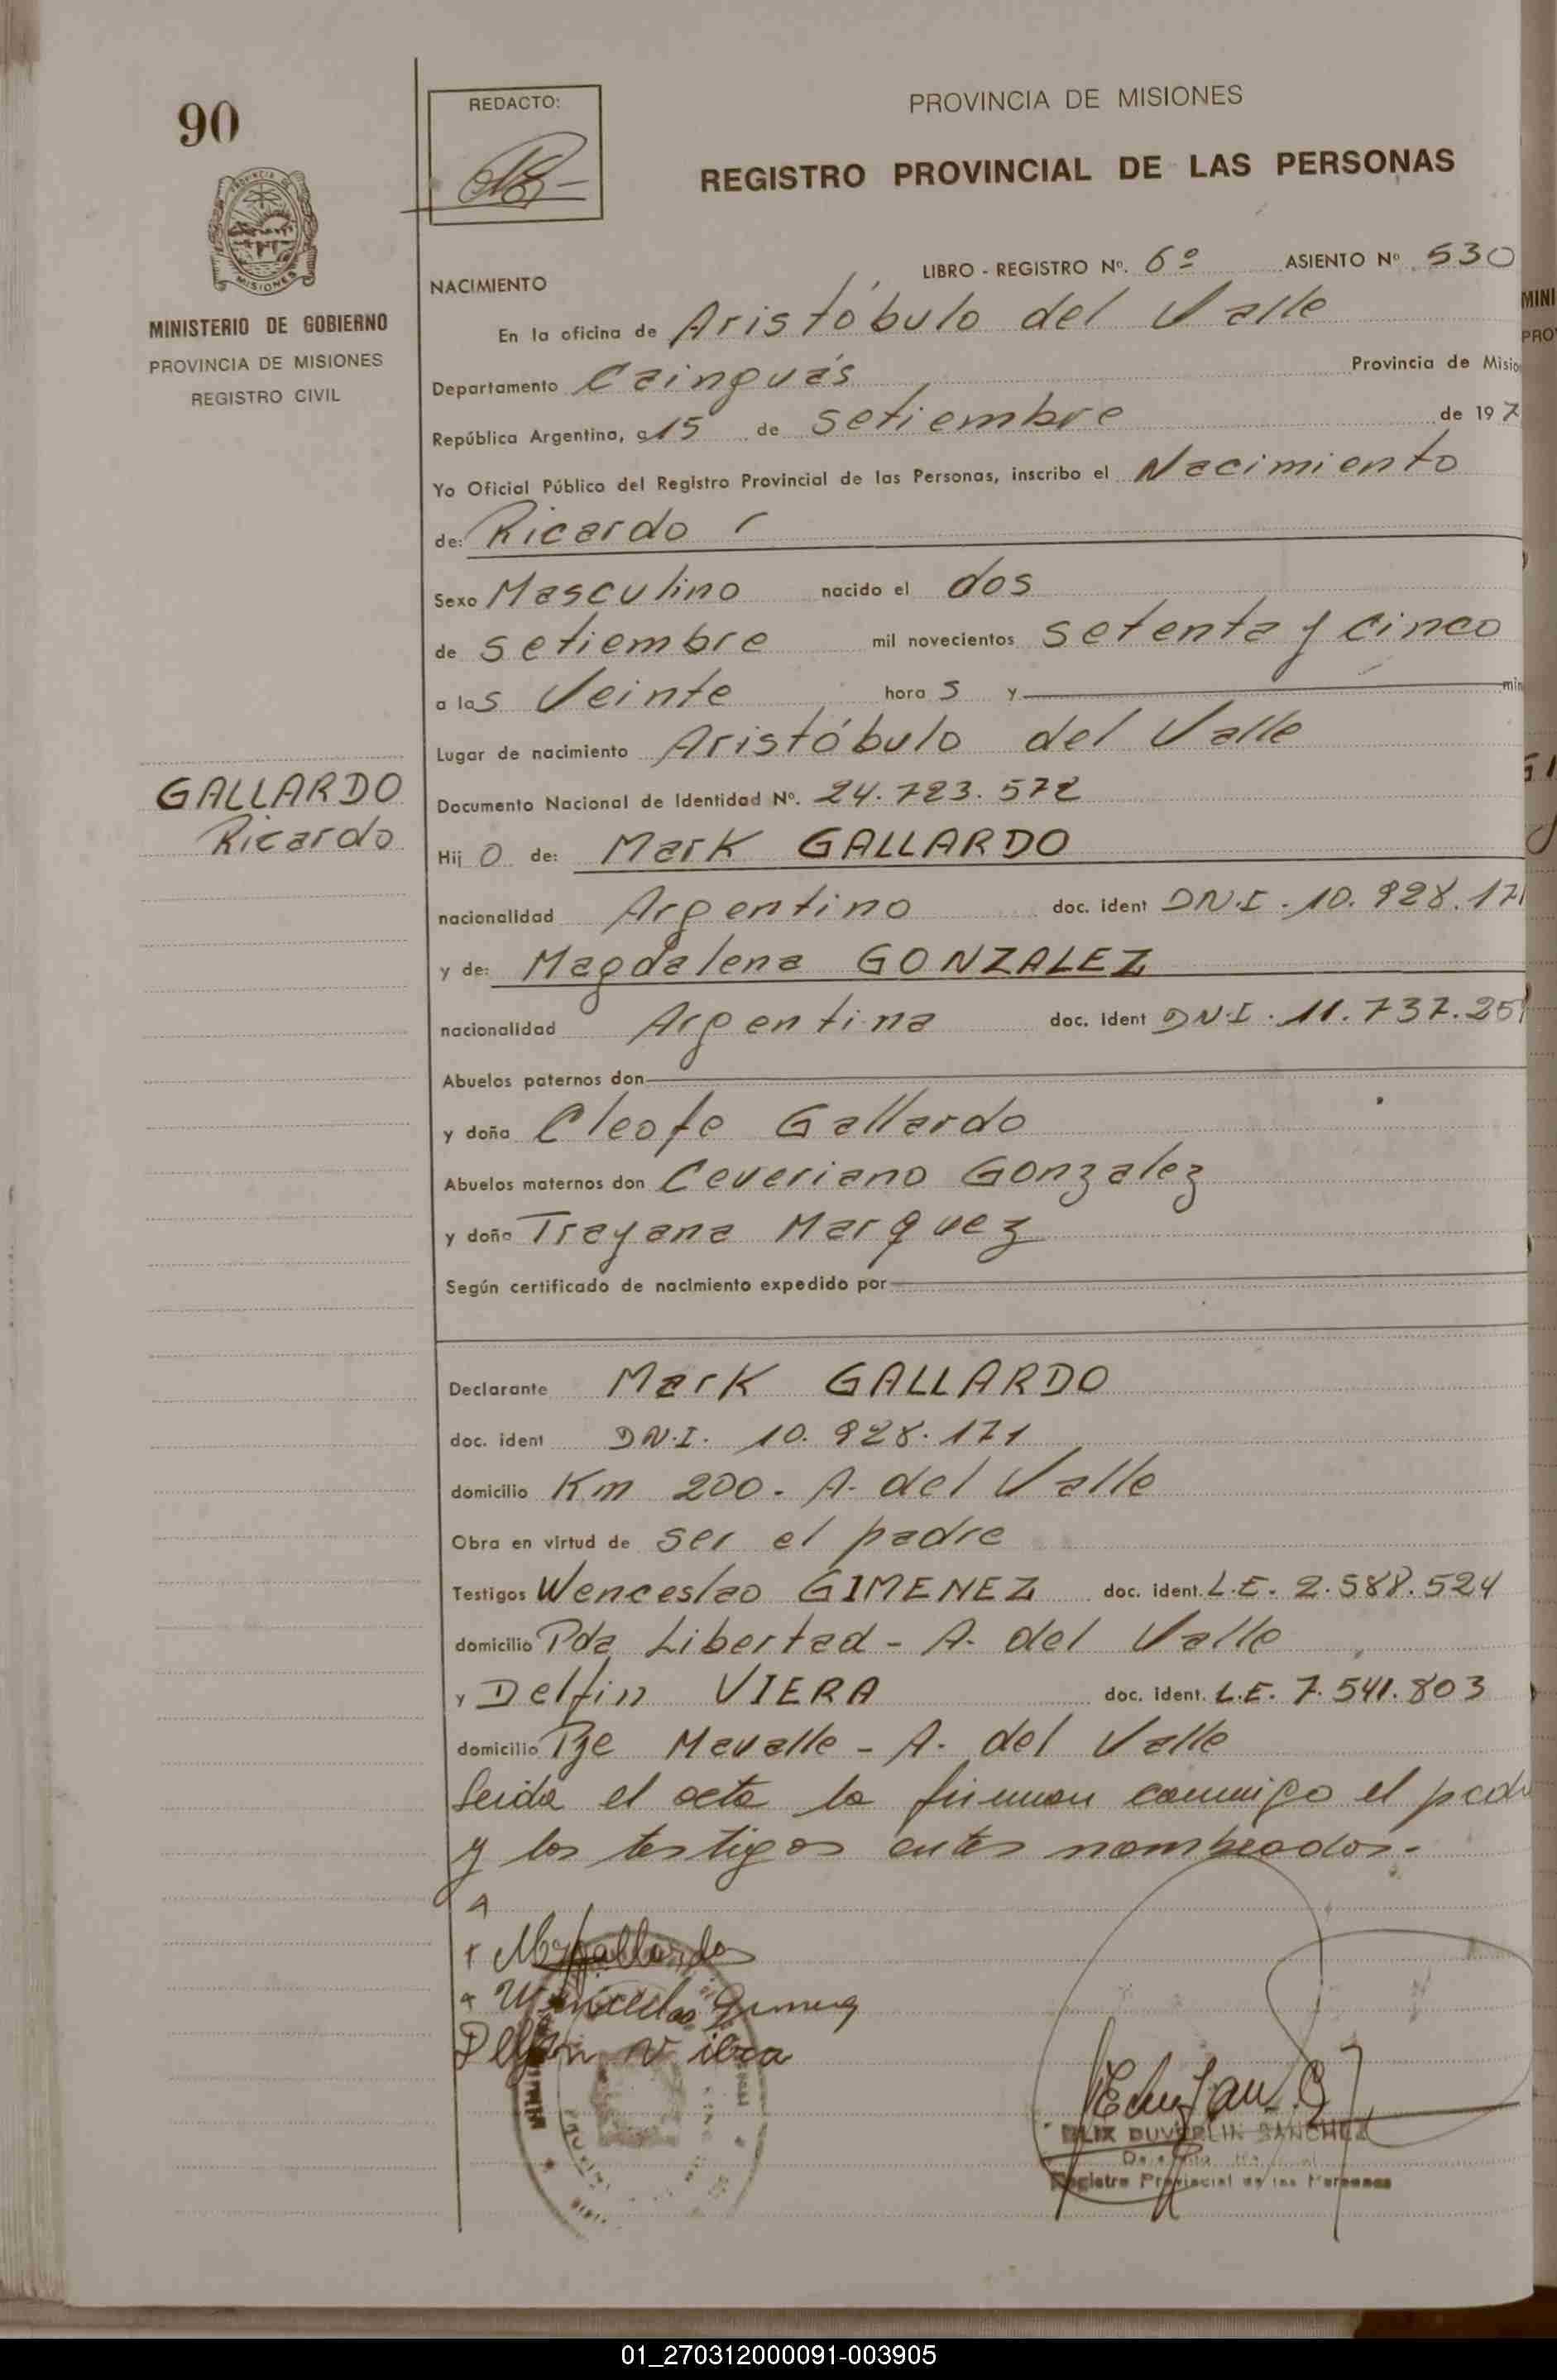 90
REDACTO:
PROVINCIA DE MISIONES
REGISTRO PROVINCIAL DE LAS PERSONAS
MISIONES
MINISTERIO DE GOBIERNO
PROVINCIA DE MISIONES
REGISTRO CIVIL
LIBRO - REGISTRO Nº. 6º ASIENTO Nº 530
NACIMIENTO
En la oficina de Aristóbulo del Valle
Departamento Cainguás Provincia de Misio
República Argentina, a 15 de setiembre de 197
Yo Oficial Público del Registro Provincial de las Personas, inscribo el Nacimiento
de: Ricardo
Sexo Masculino nacido el dos
de setiembre mil novecientos setenta y cinco
a las Veinte horas y min
Lugar de nacimiento Aristóbulo del Valle
GALLARDO
Ricardo
Documento Nacional de Identidad Nº. 24.723.572
Hijo de: Mark GALLARDO
nacionalidad Argentino doc. ident D.N.I. 10.928.171
y de: Magdalena GONZALEZ
nacionalidad Argentina doc. ident D.N.I. 11.737.25
Abuelos paternos don
y doña Cleofe Gallardo
Abuelos maternos don Ceveriano Gonzalez
y doña Trayana Marquez
Según certificado de nacimiento expedido por
Declarante Mark GALLARDO
doc. ident D.N.I. 10.928.171
domicilio Km 200. A. del Valle
Obra en virtud de ser el padre
Testigos Wenceslao GIMENEZ doc. ident. L.E. 2.588.524
domicilio Pda Libertad - A. del Valle
y Delfin VIERA doc. ident. L.E. 7.541.803
domicilio Pje Mavalle - A. del Valle
Leida el acta la firman conmigo el padr
y los testigos antes nombrados.
Gallardo
Wenceslao Gimenez
Delfin Viera
DUVERLIN SANCHEZ
Registro Provincial de las Personas
01_270312000091-003905